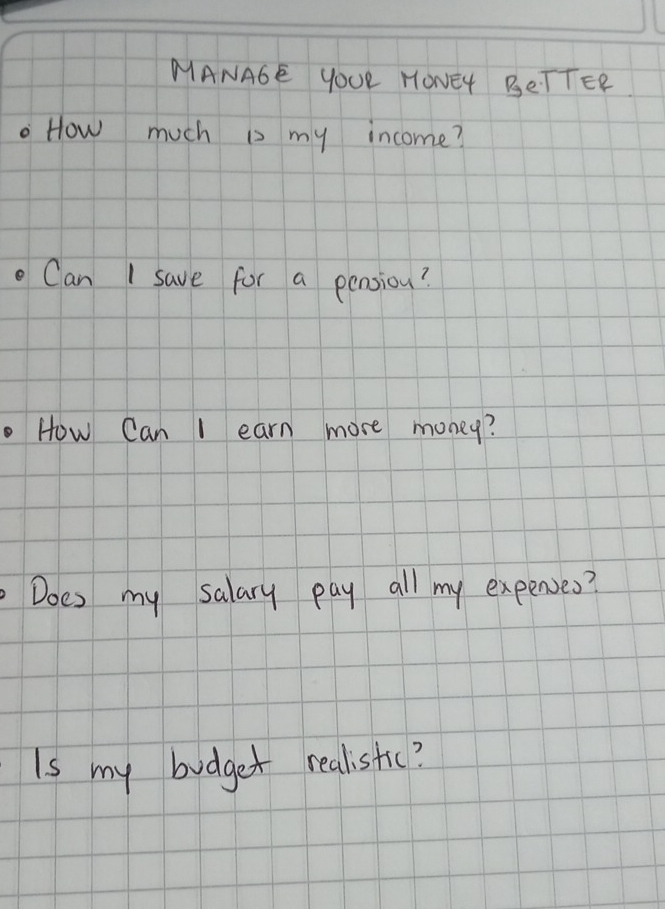 MANAGE YOUR MONEY BETTER.
• How much is my income?
• Can I save for a pension?
• How Can I earn more money?
• Does my salary pay all my expenses?
• Is my budget realistic?